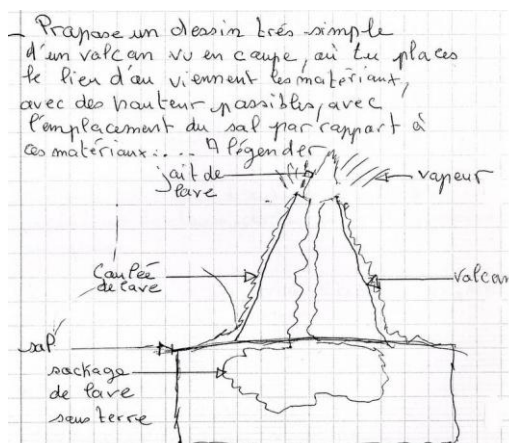 - Propose un dessin trés simple
d'un volcan vu en coupe, où tu places
le lieu d'où viennent les matériaux,
avec des hauteur possibles, avec
l'emplacement du sol par rapport à
ces matériaux.... A légender
jait de
lave
vapeur
Coulée
de lave
volcan
sol
sockage
de lave
sous terre